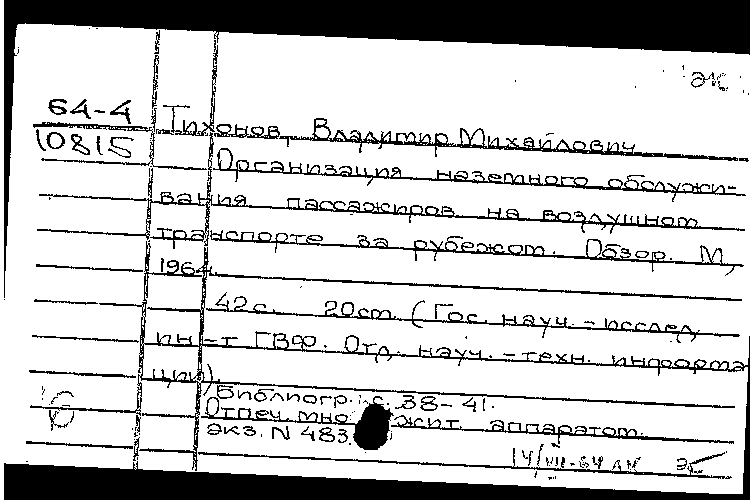 эк
64-4
10815
Тихонов, Владимир Михайлович
Организация наземного обслужи-
вания пассажиров на воздушном
транспорте за рубежом. Обзор. М,
1964.
42 с. 20 см. (Гос. науч.-исслед,
ин-т ГВФ. Отд. науч.-техн. информа
ции).
Библиогр. с. 38-41.
Отпеч. множит. аппаратом.
экз. N 483.
б
14/VII-64